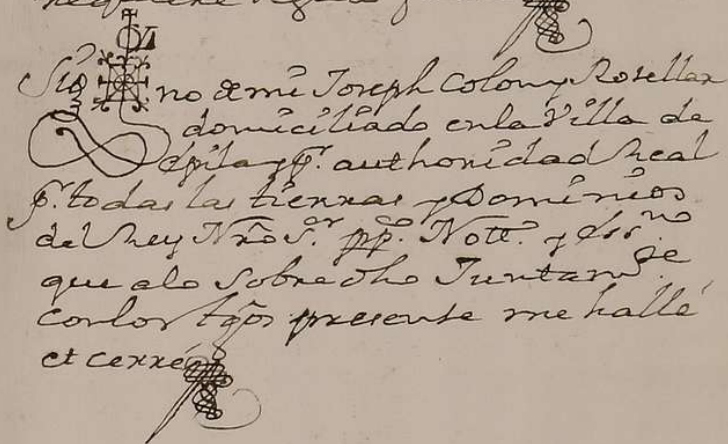 Sig no de mi Joseph Colon y Rosellar
domiciliado en la Villa de
Epila y pr. authoridad Real
pr. todas las tierras y Dominios
del Rey Nro Sor. ppco. Nott. y Essno
que alo sobre dho Juntamte
con los tgos presente me hallé
et cerré